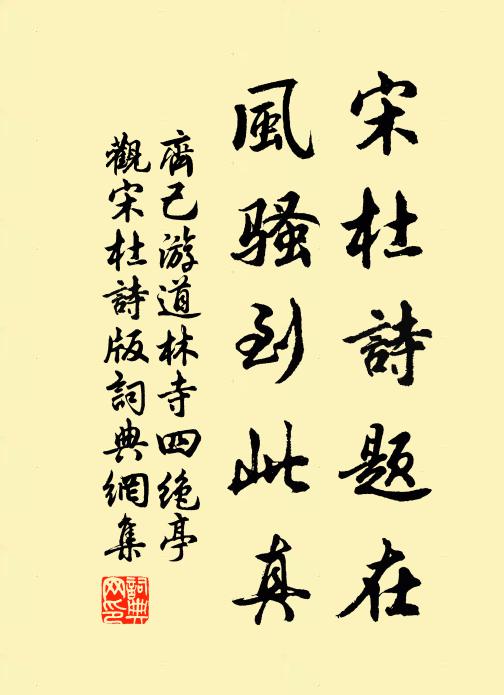 宋杜詩題在
風騷到此真
齊己游道林寺四絶亭
觀宋杜詩版詞典網集
詞典网印